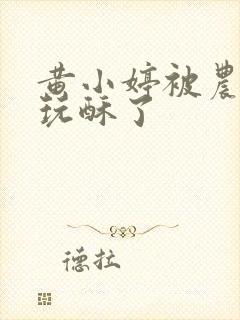 黄小婷被農
玩酥了
德拉